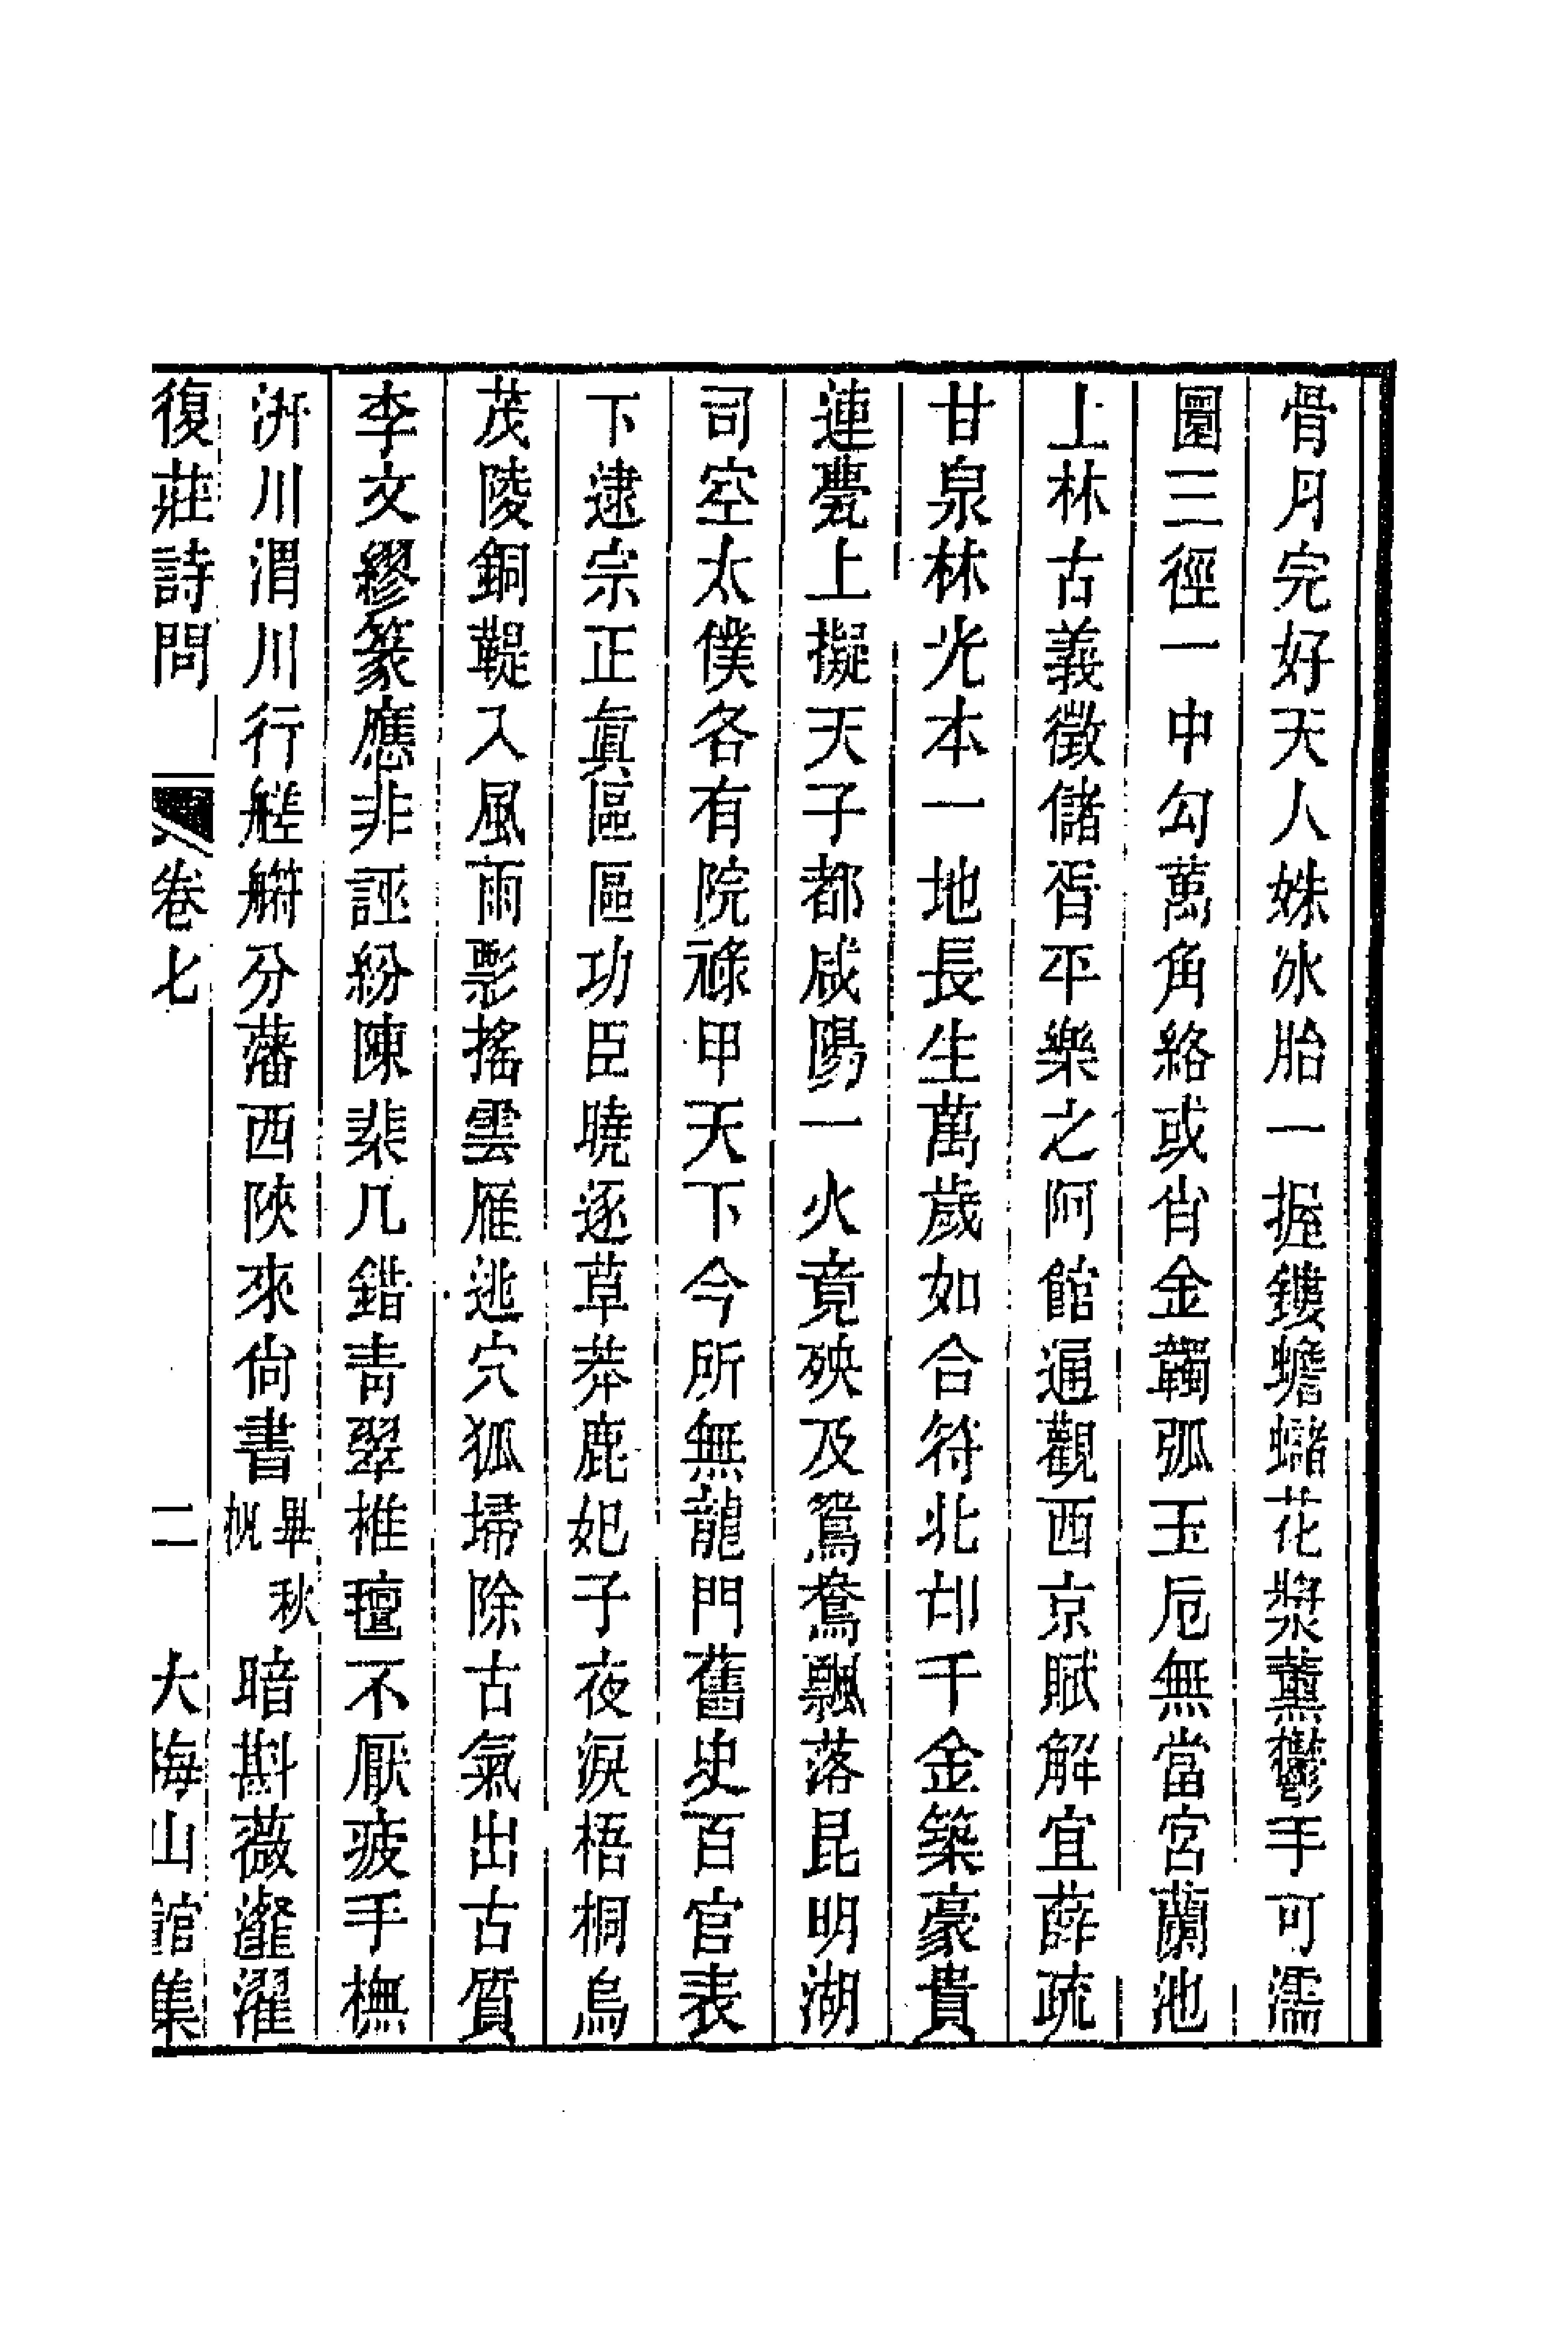 骨月完好天人姝冰胎一握鏤蟾蠩花漿薰鬱手可濡
圜三徑一中勾萬角絡或肖金鞨弧玉卮無當宮蘭池
上林古義徵儲胥平樂之阿館通觀西京賦解宜薛疏
甘泉林光本一地長生萬歲如合符北邙千金築豪貴
連甍上擬天子都咸陽一火竟殃及鴛鴦飄落昆明湖
司空太僕各有院祿甲天下今所無龍門舊史百官表
下逮宗正眞區區功臣曉逐草莽鹿妃子夜淚梧桐烏
茂陵銅鞮入風雨影搖雲雁逃穴狐埽除古氣出古質
李文繆篆應非誣紛陳棐几錯靑翠椎氊不厭疲手橅
汧川渭川行艖分藩西陝來尙書畢秋帆暗斟薇灕濯
復莊詩問 卷七 二 大梅山館集